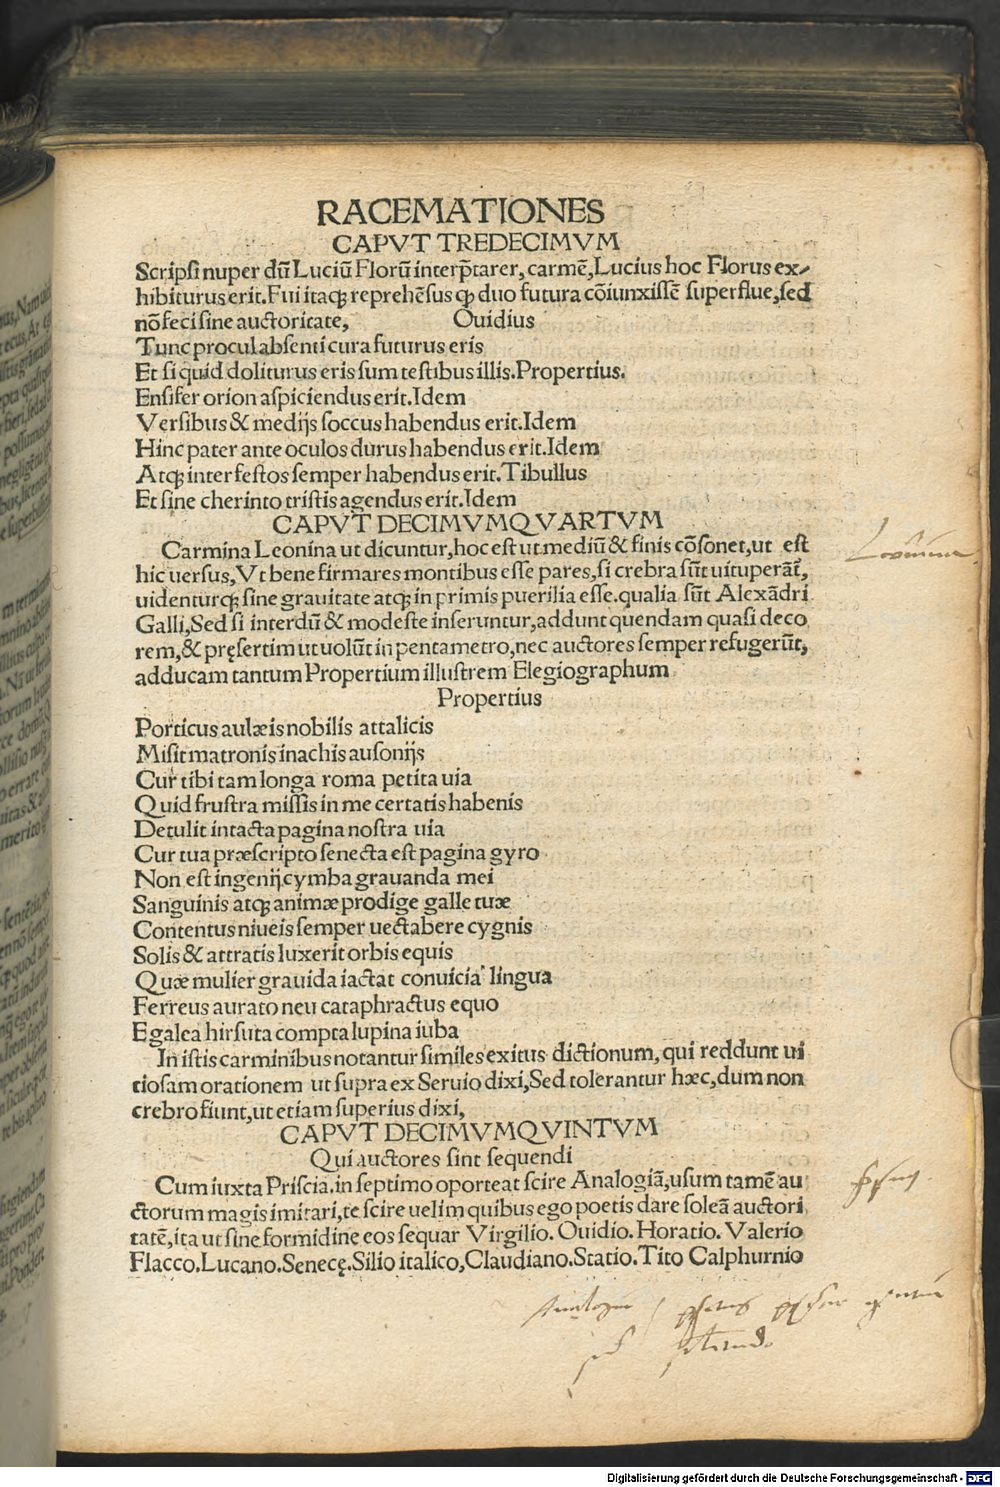 RACEMATIONES
CAPVT TREDECIMVM
Scripsi nuper dū Luciū Florū interp̄tarer, carmē, Lucius hoc Florus ex⸗
hibiturus erit. Fui itaqꝫ reprehēsus ꝙ duo futura cōiunxissē superflue, sed
nō feci sine auctoritate, Ouidius
Tunc procul absenti cura futurus eris
Et si quid doliturus eris sum testibus illis. Propertius.
Ensifer orion aspiciendus erit. Idem
Versibus & medijs soccus habendus erit. Idem
Hinc pater ante oculos durus habendus erit. Idem
Atqꝫ inter festos semper habendus erit. Tibullus
Et sine cherinto tristis agendus erit. Idem
CAPVT DECIMVMQVARTVM
Carmina Leonina ut dicuntur, hoc est ut mediū & finis cōsonet, ut est
hic uersus, Vt bene firmares montibus esse pares, si crebra sūt uituperāt̄,
uidenturqꝫ sine grauitate atqꝫ in primis puerilia esse. qualia sūt Alexādri
Galli, Sed si interdū & modeste inseruntur, addunt quendam quasi deco
rem, & pręsertim ut uolūt in pentametro, nec auctores semper refugerūt,
adducam tantum Propertium illustrem Elegiographum
Propertius
Porticus aulæis nobilis attalicis
Misit matronis inachis ausonijs
Cur tibi tam longa roma petita uia
Quid frustra missis in me certatis habenis
Detulit intacta pagina nostra uia
Cur tua præscripto senecta est pagina gyro
Non est ingenij cymba grauanda mei
Sanguinis atqꝫ animæ prodige galle tuæ
Contentus niueis semper uectabere cygnis
Solis & attratis luxerit orbis equis
Quæ mulier grauida iactat conuicia lingua
Ferreus aurato neu cataphractus equo
E galea hirsuta compta lupina iuba
In istis carminibus notantur similes exitus dictionum, qui reddunt ui
tiosam orationem ut supra ex Seruio dixi, Sed tolerantur hæc, dum non
crebro fiunt, ut etiam superius dixi,
CAPVT DECIMVMQVINTVM
Qui auctores sint sequendi
Cum iuxta Priscia. in septimo oporteat scire Analogiā, usum tamē au
ctorum magis imitari, te scire uelim quibus ego poetis dare soleā auctori
tatē, ita ut sine formidine eos sequar Virgilio. Ouidio. Horatio. Valerio
Flacco. Lucano. Senecę. Silio italico, Claudiano. Statio. Tito Calphurnio
Digitalisierung gefördert durch die Deutsche Forschungsgemeinschaft - DFG